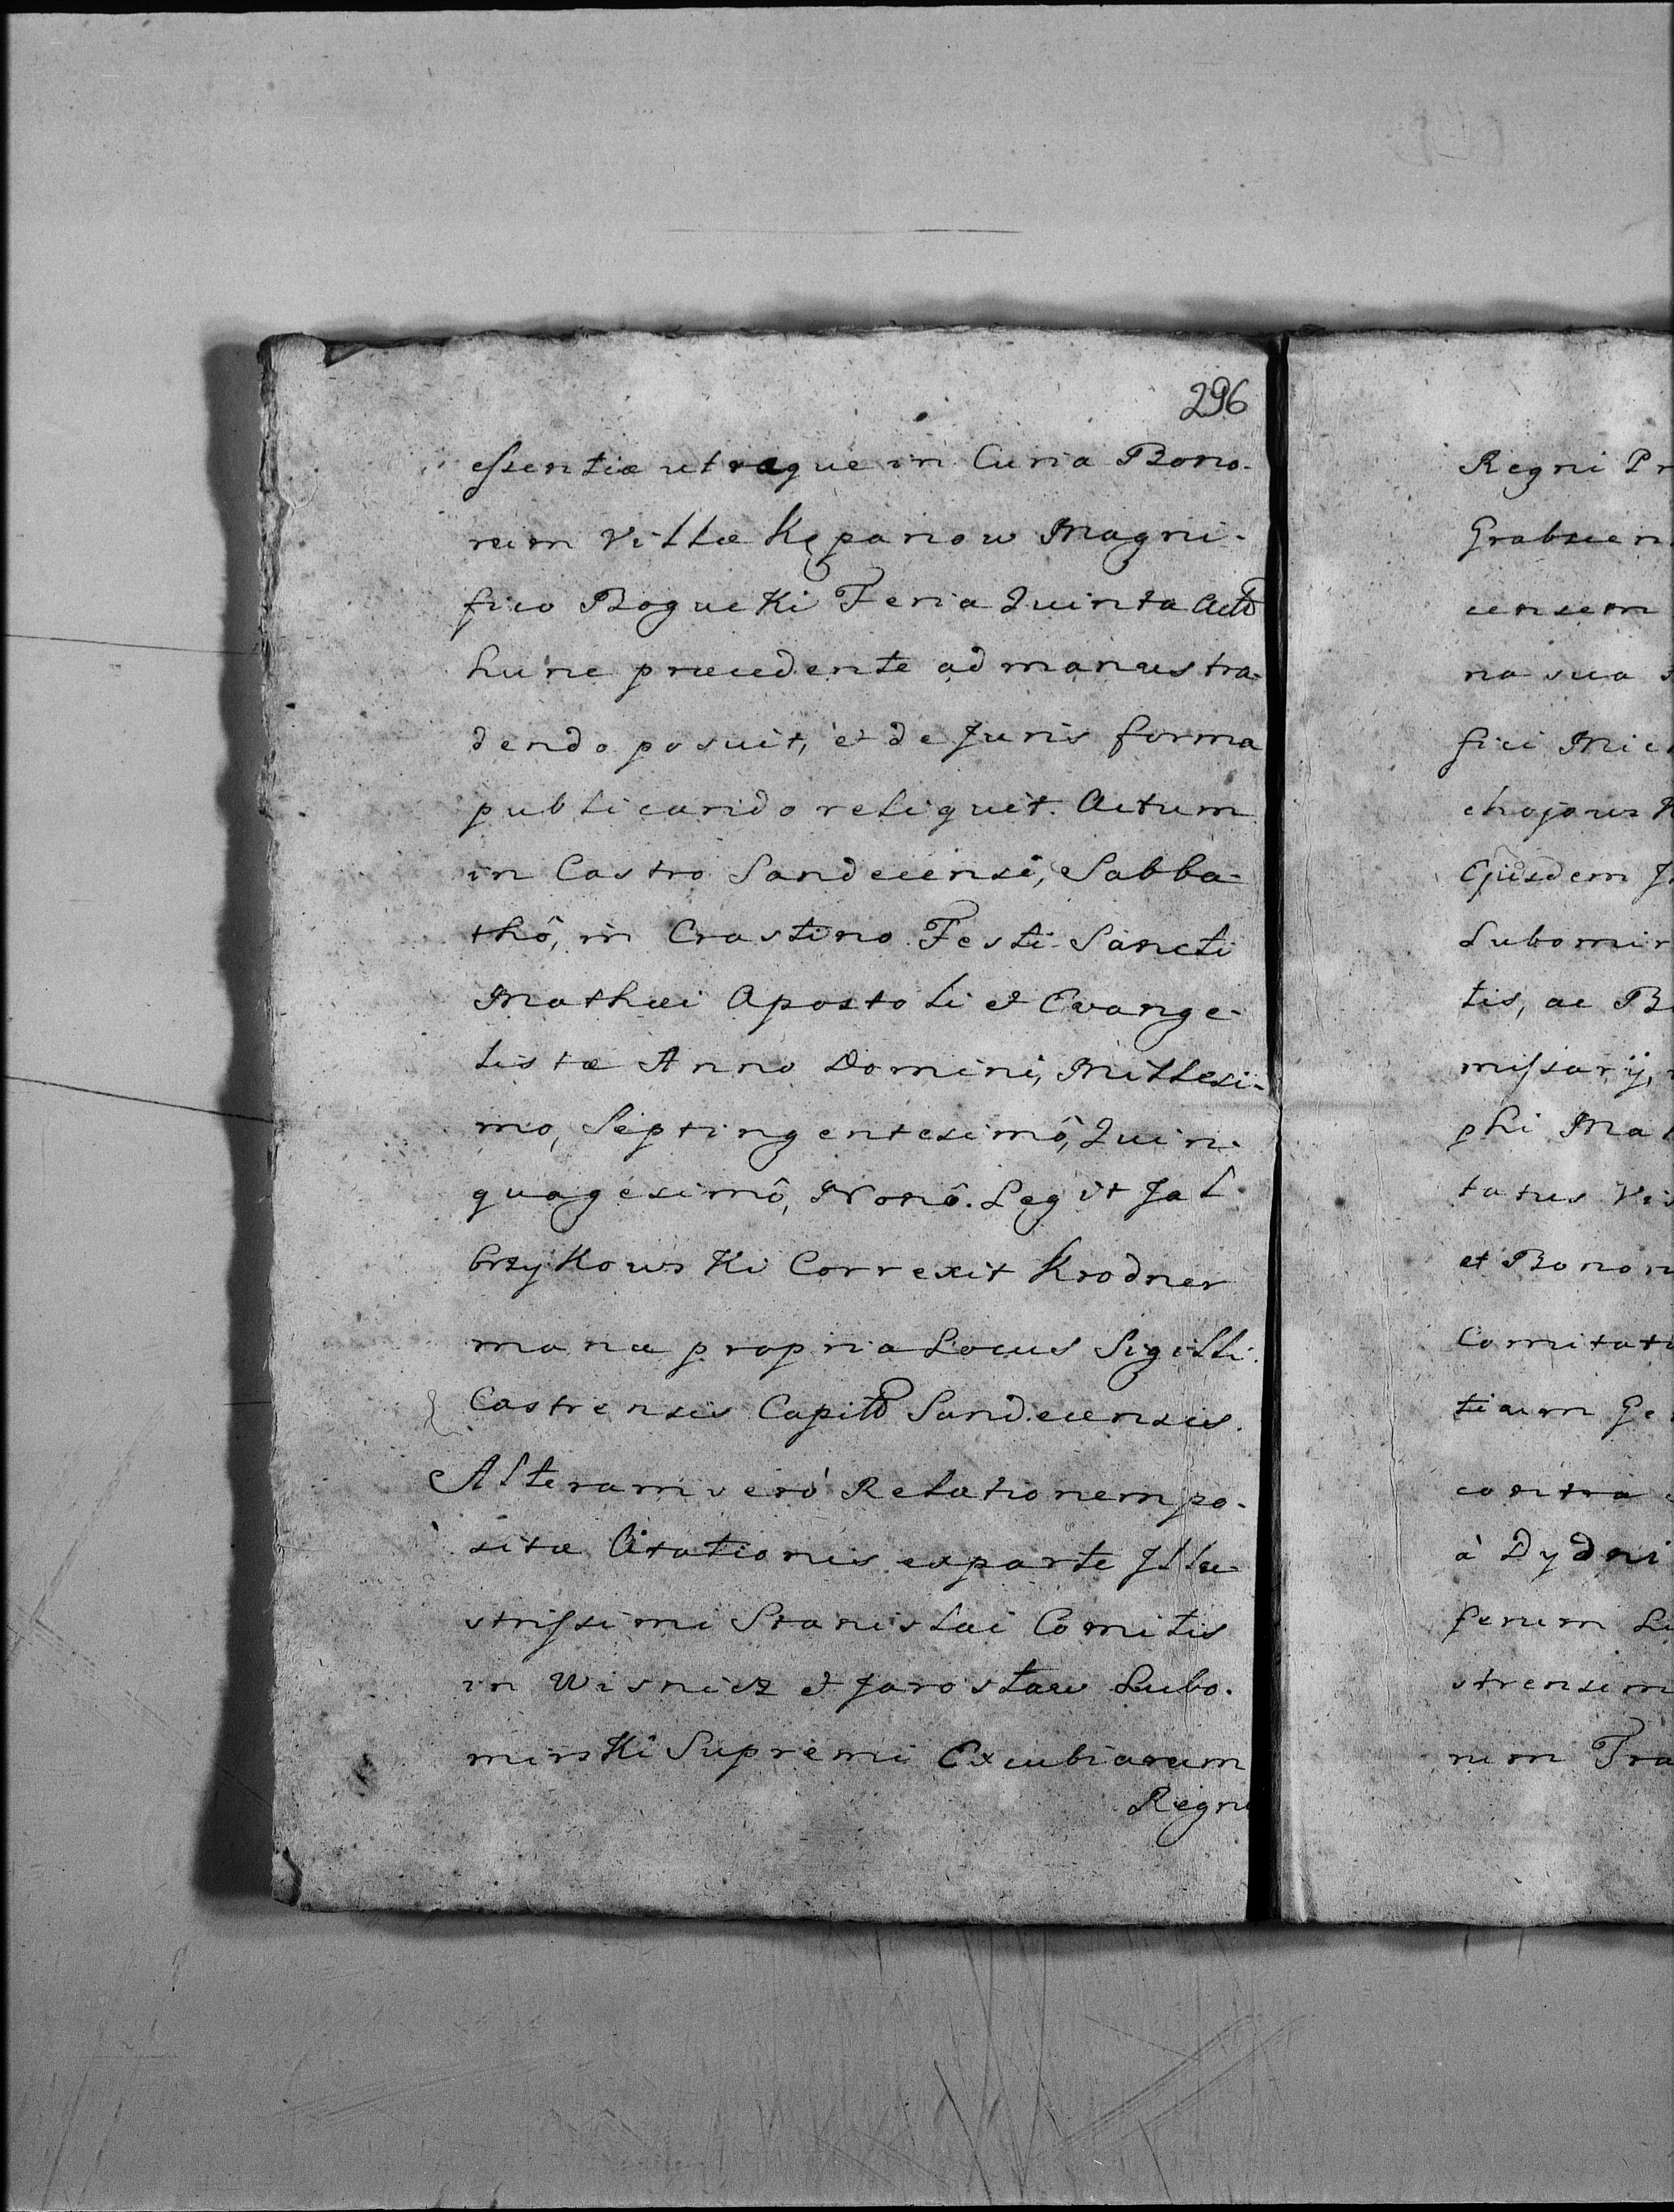 296
eſsentiæ utraque in Curia Bono-
rum Villæ Kępanow Magni-
fico Bogucki Feria Quinta Actũ
hunc præcedente ad manus tra-
dendo posuit, et de Juris forma
publicando reliquit. Actum
in Castro Sandecensi, Sabba-
thô, in Crastino Festi Sancti
Mathæi Apostoli et Evange-
listæ Anno Domini, Millesi-
mo, Septingentesimô, Quin-
quagesimô, Nonô. Legit Jał
brzykowski Correxit Krodner
manu propria Locus Sigilli
Castrensis Capitũ Sandecensis.
Alteram verò Relationem po-
sitæ Citationis exparte Illu-
striſsimi Stanislai Comitis
in Wisnicz et Jarosław Lubo-
mirski Supremi Excubiarum
Regni
Regni Pr
Grabuen
censem
na sua
fici Mic
chajow
Ejusdem
Lubomir
tis, ac B
miſsarij,
phi Ma
tatus Vis
et Bonor
Comitat
tiam Ge
contra
à Dydni
ferum Li
strensem
rum Tra